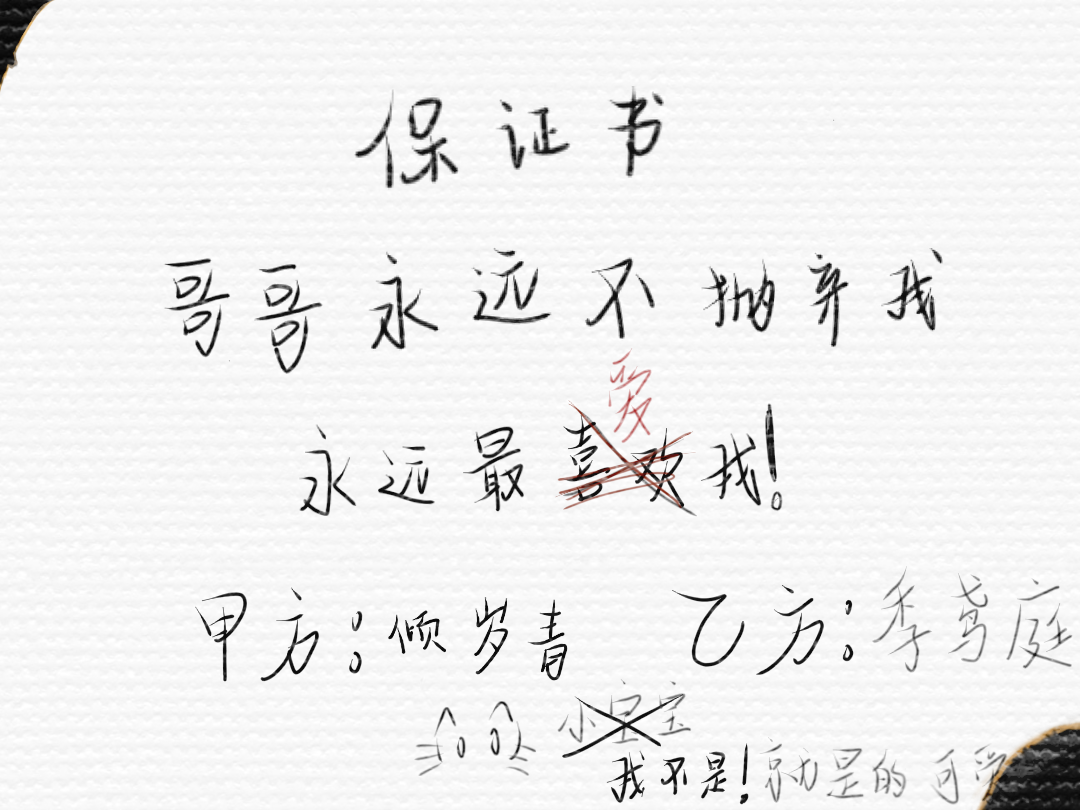 保证书
哥哥永远不抛弃我
爱
永远最喜欢我!
甲方:倾岁青 乙方:季鸢庭
小宝宝
我不是!就是的 可爱